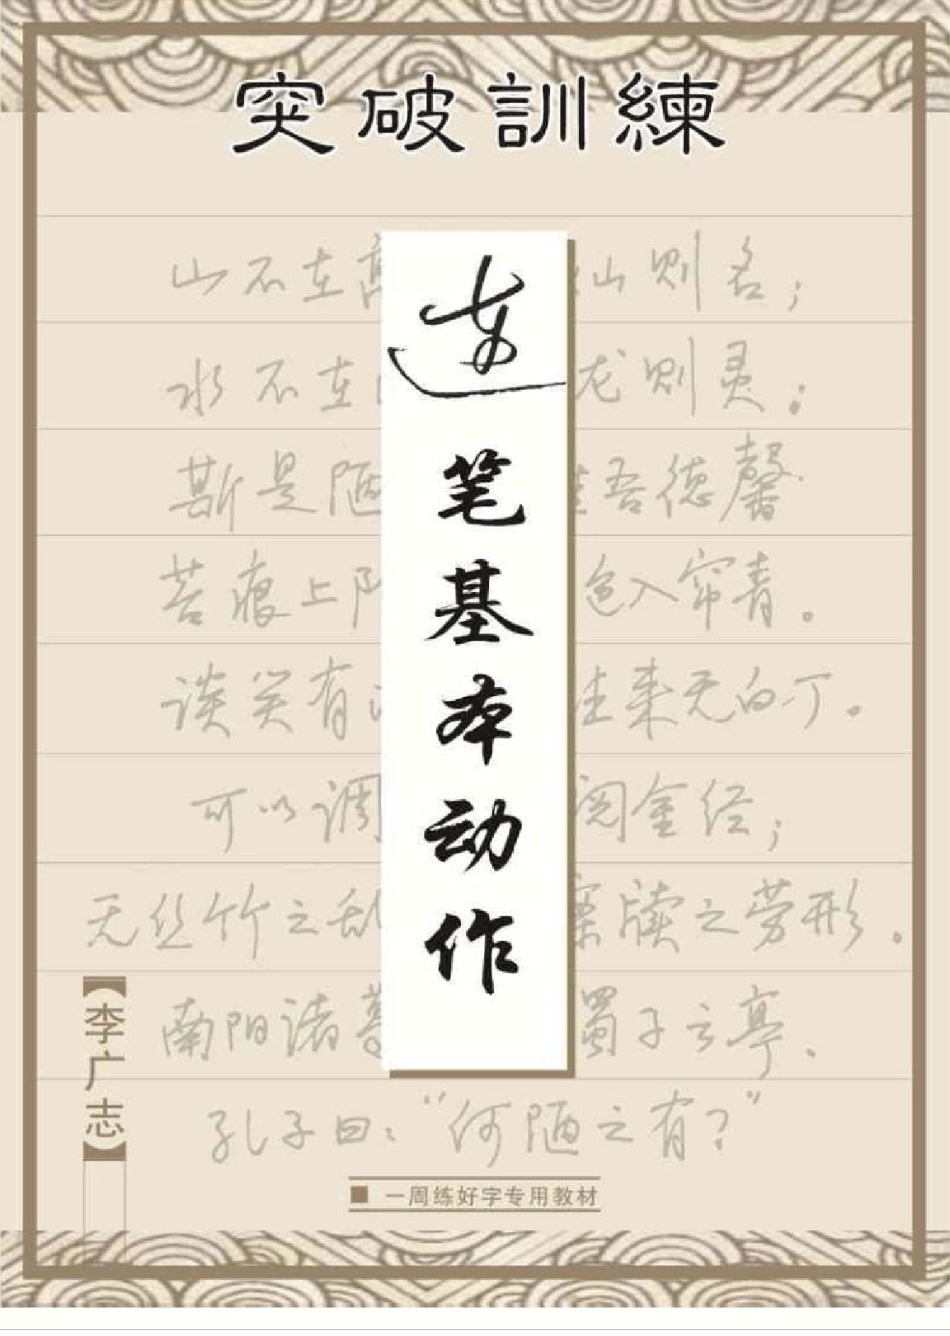 突破訓練
连笔基本动作
山不在高 仙则名；
水不在 龙则灵：
斯是陋 惟吾德馨
苔痕上阶 色入帘青。
谈笑有 往来无白丁。
可以调 阅金经；
无丝竹之乱 案牍之劳形.
南阳诸葛 蜀子云亭.
孔子曰：“何陋之有？”
【李广志】
■ 一周练好字专用教材